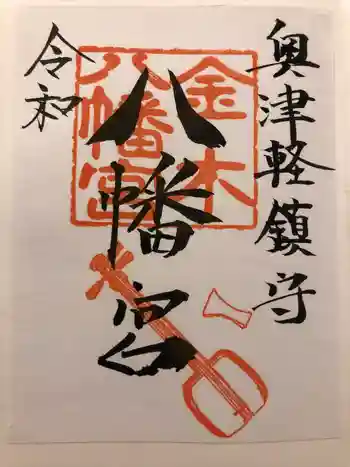 奥津軽鎮守
金木
八幡宮
八幡宮
令和